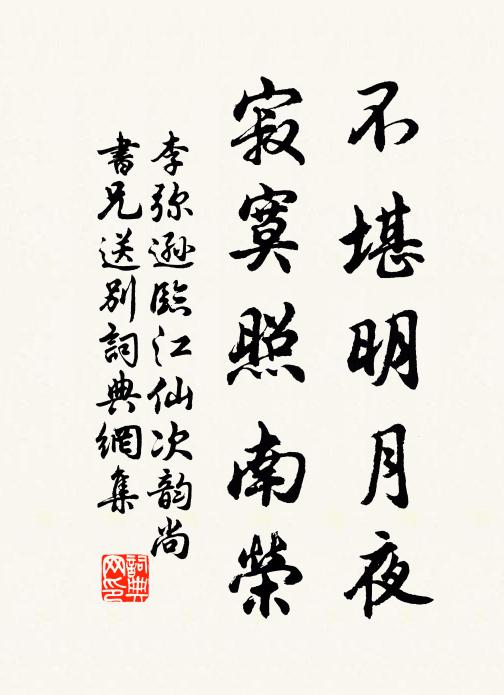 不堪明月夜
寂寞照南榮
李弥遜臨江仙次韵尚
書兄送別詞典網集
詞典
网印